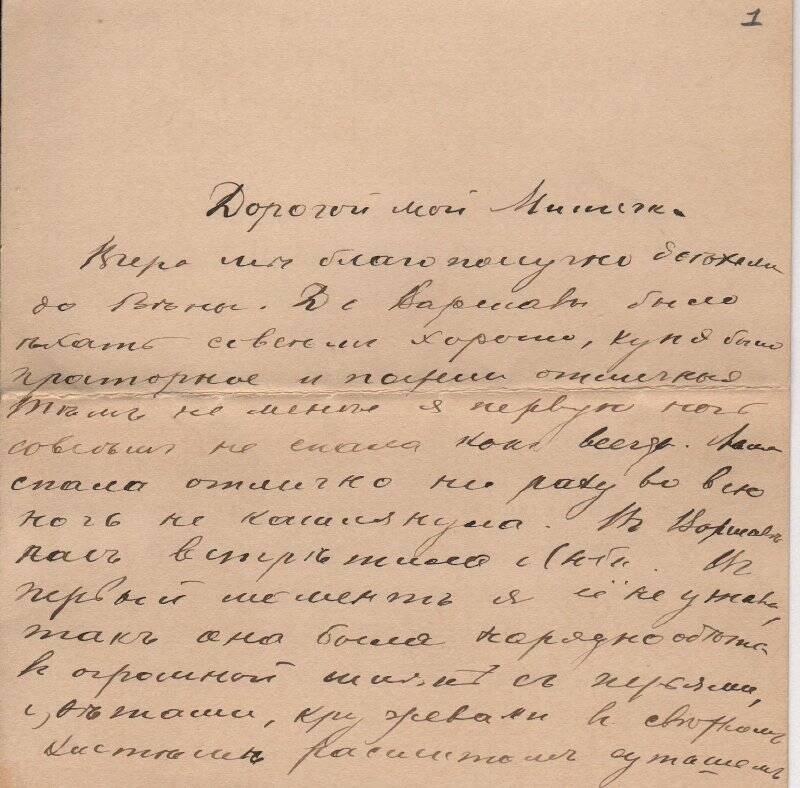 1
Дорогой мой Мишечка.
Вчера мы благополучно доѣхали
до Вѣны. До Варшавы было
ѣхать совсемъ хорошо, купэ было
просторное и попали отличныя
Тѣмъ не менѣе я первую ночь
совсѣмъ не спала как всегда.
спала отлично ни разу во всю
ночь не кашлянула. Въ Варшавѣ
насъ встрѣтила Въ
первый моментъ я её не узнала,
такъ она была нарядно одѣта
в огромной шляпѣ съ перьями,
цвѣтами, кружевами и в свѣтломъ
костюмѣ расшитомъ суташемъ